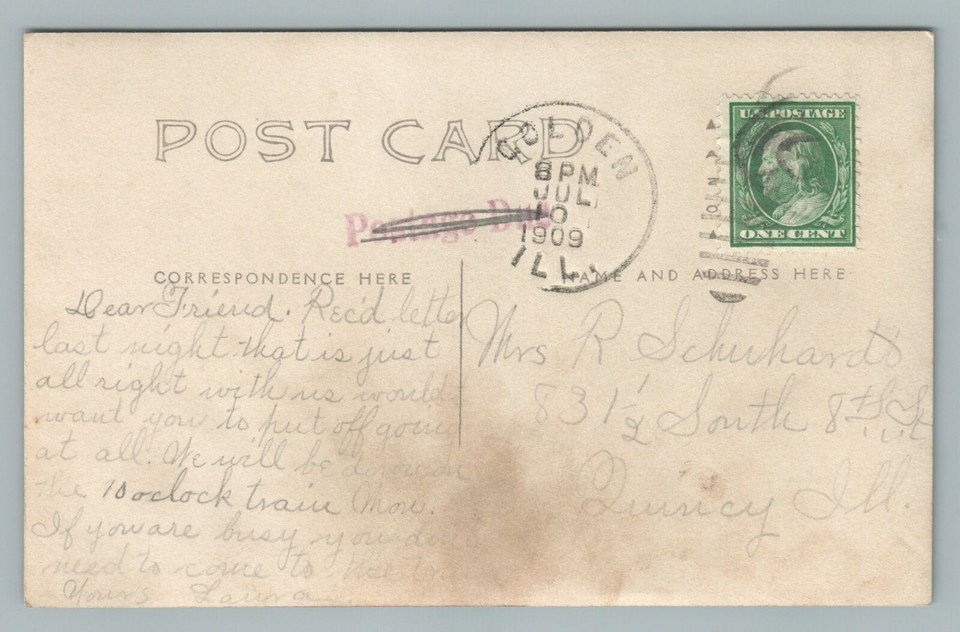 POST CARD
GOLDEN
8 PM
JUL
1909
ILL.
U.S. POSTAGE
ONE CENT
Postage Due
CORRESPONDENCE HERE
NAME AND ADDRESS HERE
Dear Friend. Rec'd letter
last night that is just
all right with us would
want you to put off going
at all. We will be down on
the 10 oclock train Mon.
If you are busy you don't
need to come to the train
Yours Laura
Mrs R Schuhardt
831 1/2 South 8th St
Quincy Ill.